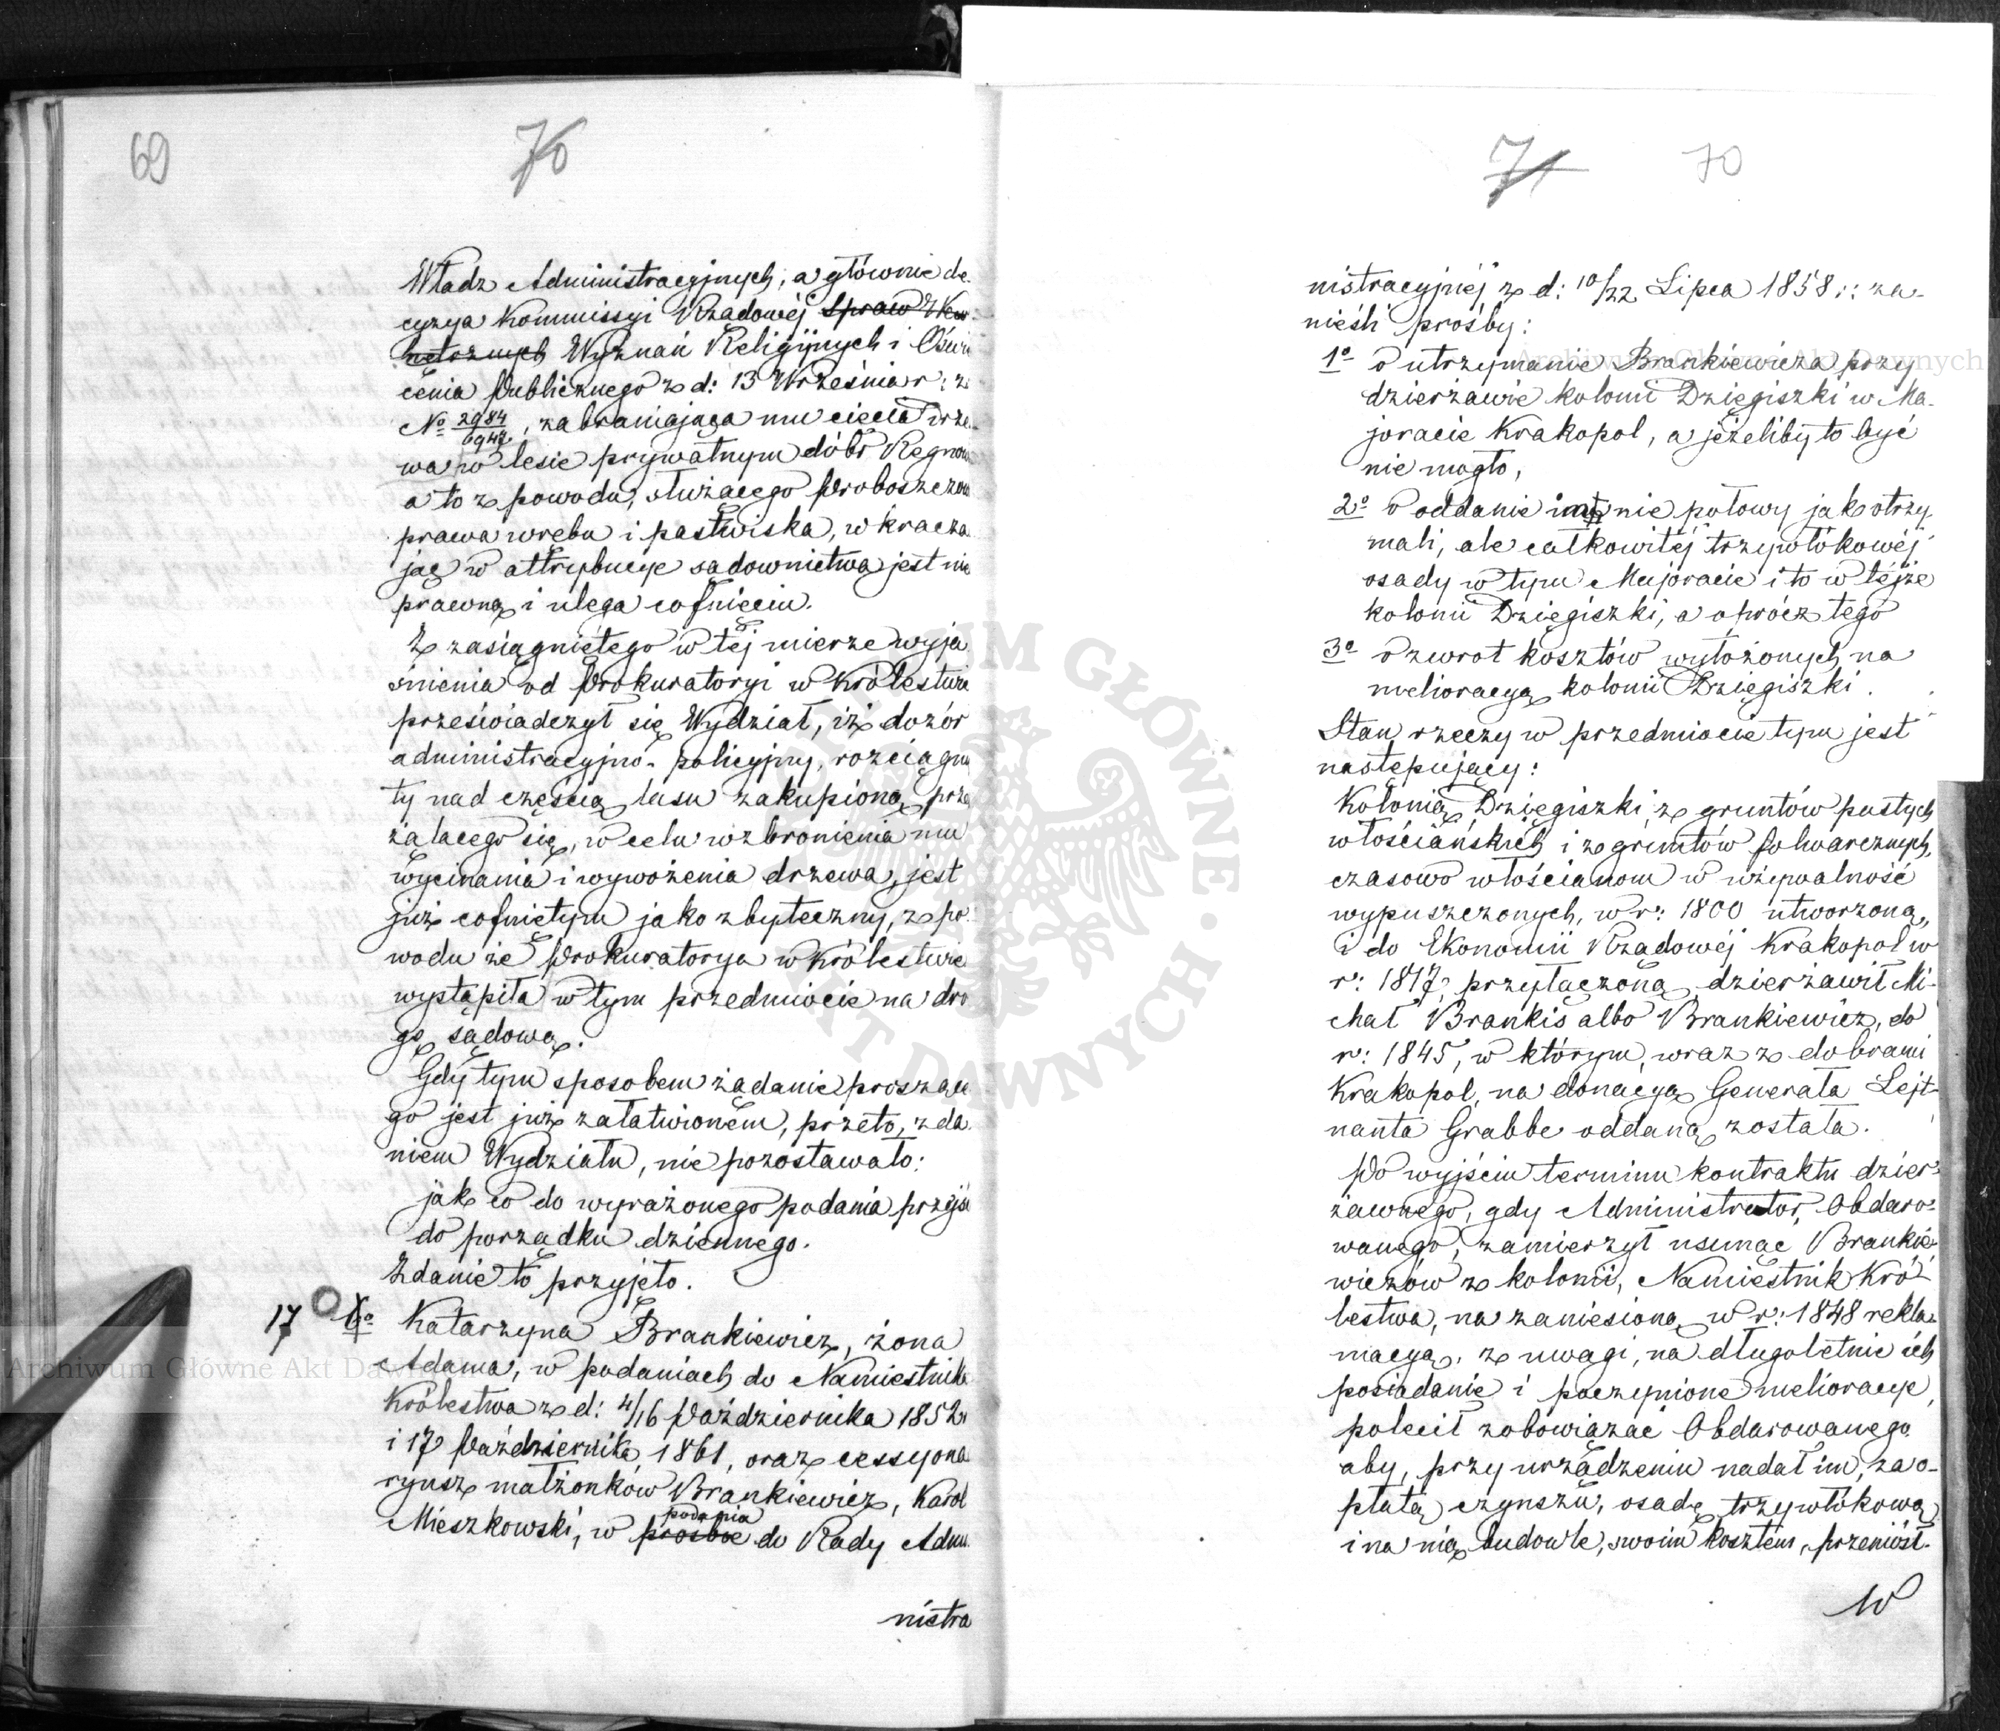 69
70
Władz Administracyjnych, a głównie de-
cyzya Kommissyi Rządowéj Spraw Wew-
nętrznych Wyznań Religijnych i Oświe
cenia Publicznego z d: 13 Września r: z
No 2984/6942, zabraniająca mu cięcia drze-
wa w lesie prywatnym dóbr Regnow
a to z powodu, służącego Proboszczow
prawa wrębu i pastwiska, wkracza
jąc w attrybucye sądownictwa jest nie
prawną i ulega cofnięciu.
Z zasiągniętego w téj mierze wyja
śnienia od Prokuratoryi w Królestwie
przeświadczył się Wydział, iż dozór
administracyjno-policyjny, rozciągnię
ty nad częścią lasu zakupioną przez
żalącego się, w celu wzbronienia mu
wycinania i wywożenia drzewa, jest
już cofniętym jako zbyteczny, z po-
wodu że Prokuratorya w Królestwie
wystąpiła w tym przedmiocie na dro
gę sądową.
Gdy tym sposobem żądanie proszące
go jest już załatwioném, przeto, zda
niem Wydziału, nie pozostawało:
jak co do wyrażonego podania przejść
do porządku dziennego.
Zdanie to przyjęto.
17 Katarzyna Brankiewicz, żona
Adama, w podaniach do Namiestnika
Królestwa z d: 4/16 Października 1852 r
i 17 Października 1861, oraz cessyona
ryusz małżonków Brankiewicz, Karol
podania
Mieszkowski, w prośbie do Rady Admi
nistra
71 70
nistracyjnéj z d: 10/22 Lipca 1858 r: za-
nieśli prośby:
1o o utrzymanie Brankiewicza przy
dzierżawie kolonii Dzięgiszki w Ma-
joracie Krakopol, a jeżeliby to być
nie mogło,
2o o oddanie im nie połowy jak otrzy-
mali, ale całkowitéj trzywłókowéj
osady w tym Majoracie i to w téjże
kolonii Dzięgiszki, a oprócz tego
3o o zwrot kosztów wyłożonych na
melioracyą kolonii Dzięgiszki.
Stan rzeczy w przedmiocie tym jest
następujący:
Kolonią Dzięgiszki, z gruntów pustych
włościańskich i z gruntów folwarcznych,
czasowo włościanom w używalność
wypuszczonych, w r: 1800 utworzoną,
i do Ekonomii Rządowéj Krakopol w
r: 1817 przyłączoną dzierżawił Mi-
chał Brankis albo Brankiewicz, do
r: 1845, w którym, wraz z dobrami
Krakopol, na donacyą Generała Lejt-
nanta Grabbe oddaną została.
Po wyjściu terminu kontraktu dzier-
żawnego, gdy Administrator Obdaro-
wanego, zamierzył usunąć Brankie-
wiczów z kolonii, Namiestnik Kró-
lestwa, na zaniesioną w r: 1848 rekla-
macyą, z uwagi, na długoletnie ich
posiadanie i poczynione melioracye,
polecił zobowiązać Obdarowanego
aby, przy urządzeniu nadał im, za o-
płatą czynszu, osadę trzywłókową
i na nią budowle, swoim kosztem, przeniósł.
W
Archiwum Główne Akt Dawnych
Archiwum Główne Akt Daw
ARCHIWUM GŁÓWNE AKT DAWNYCH